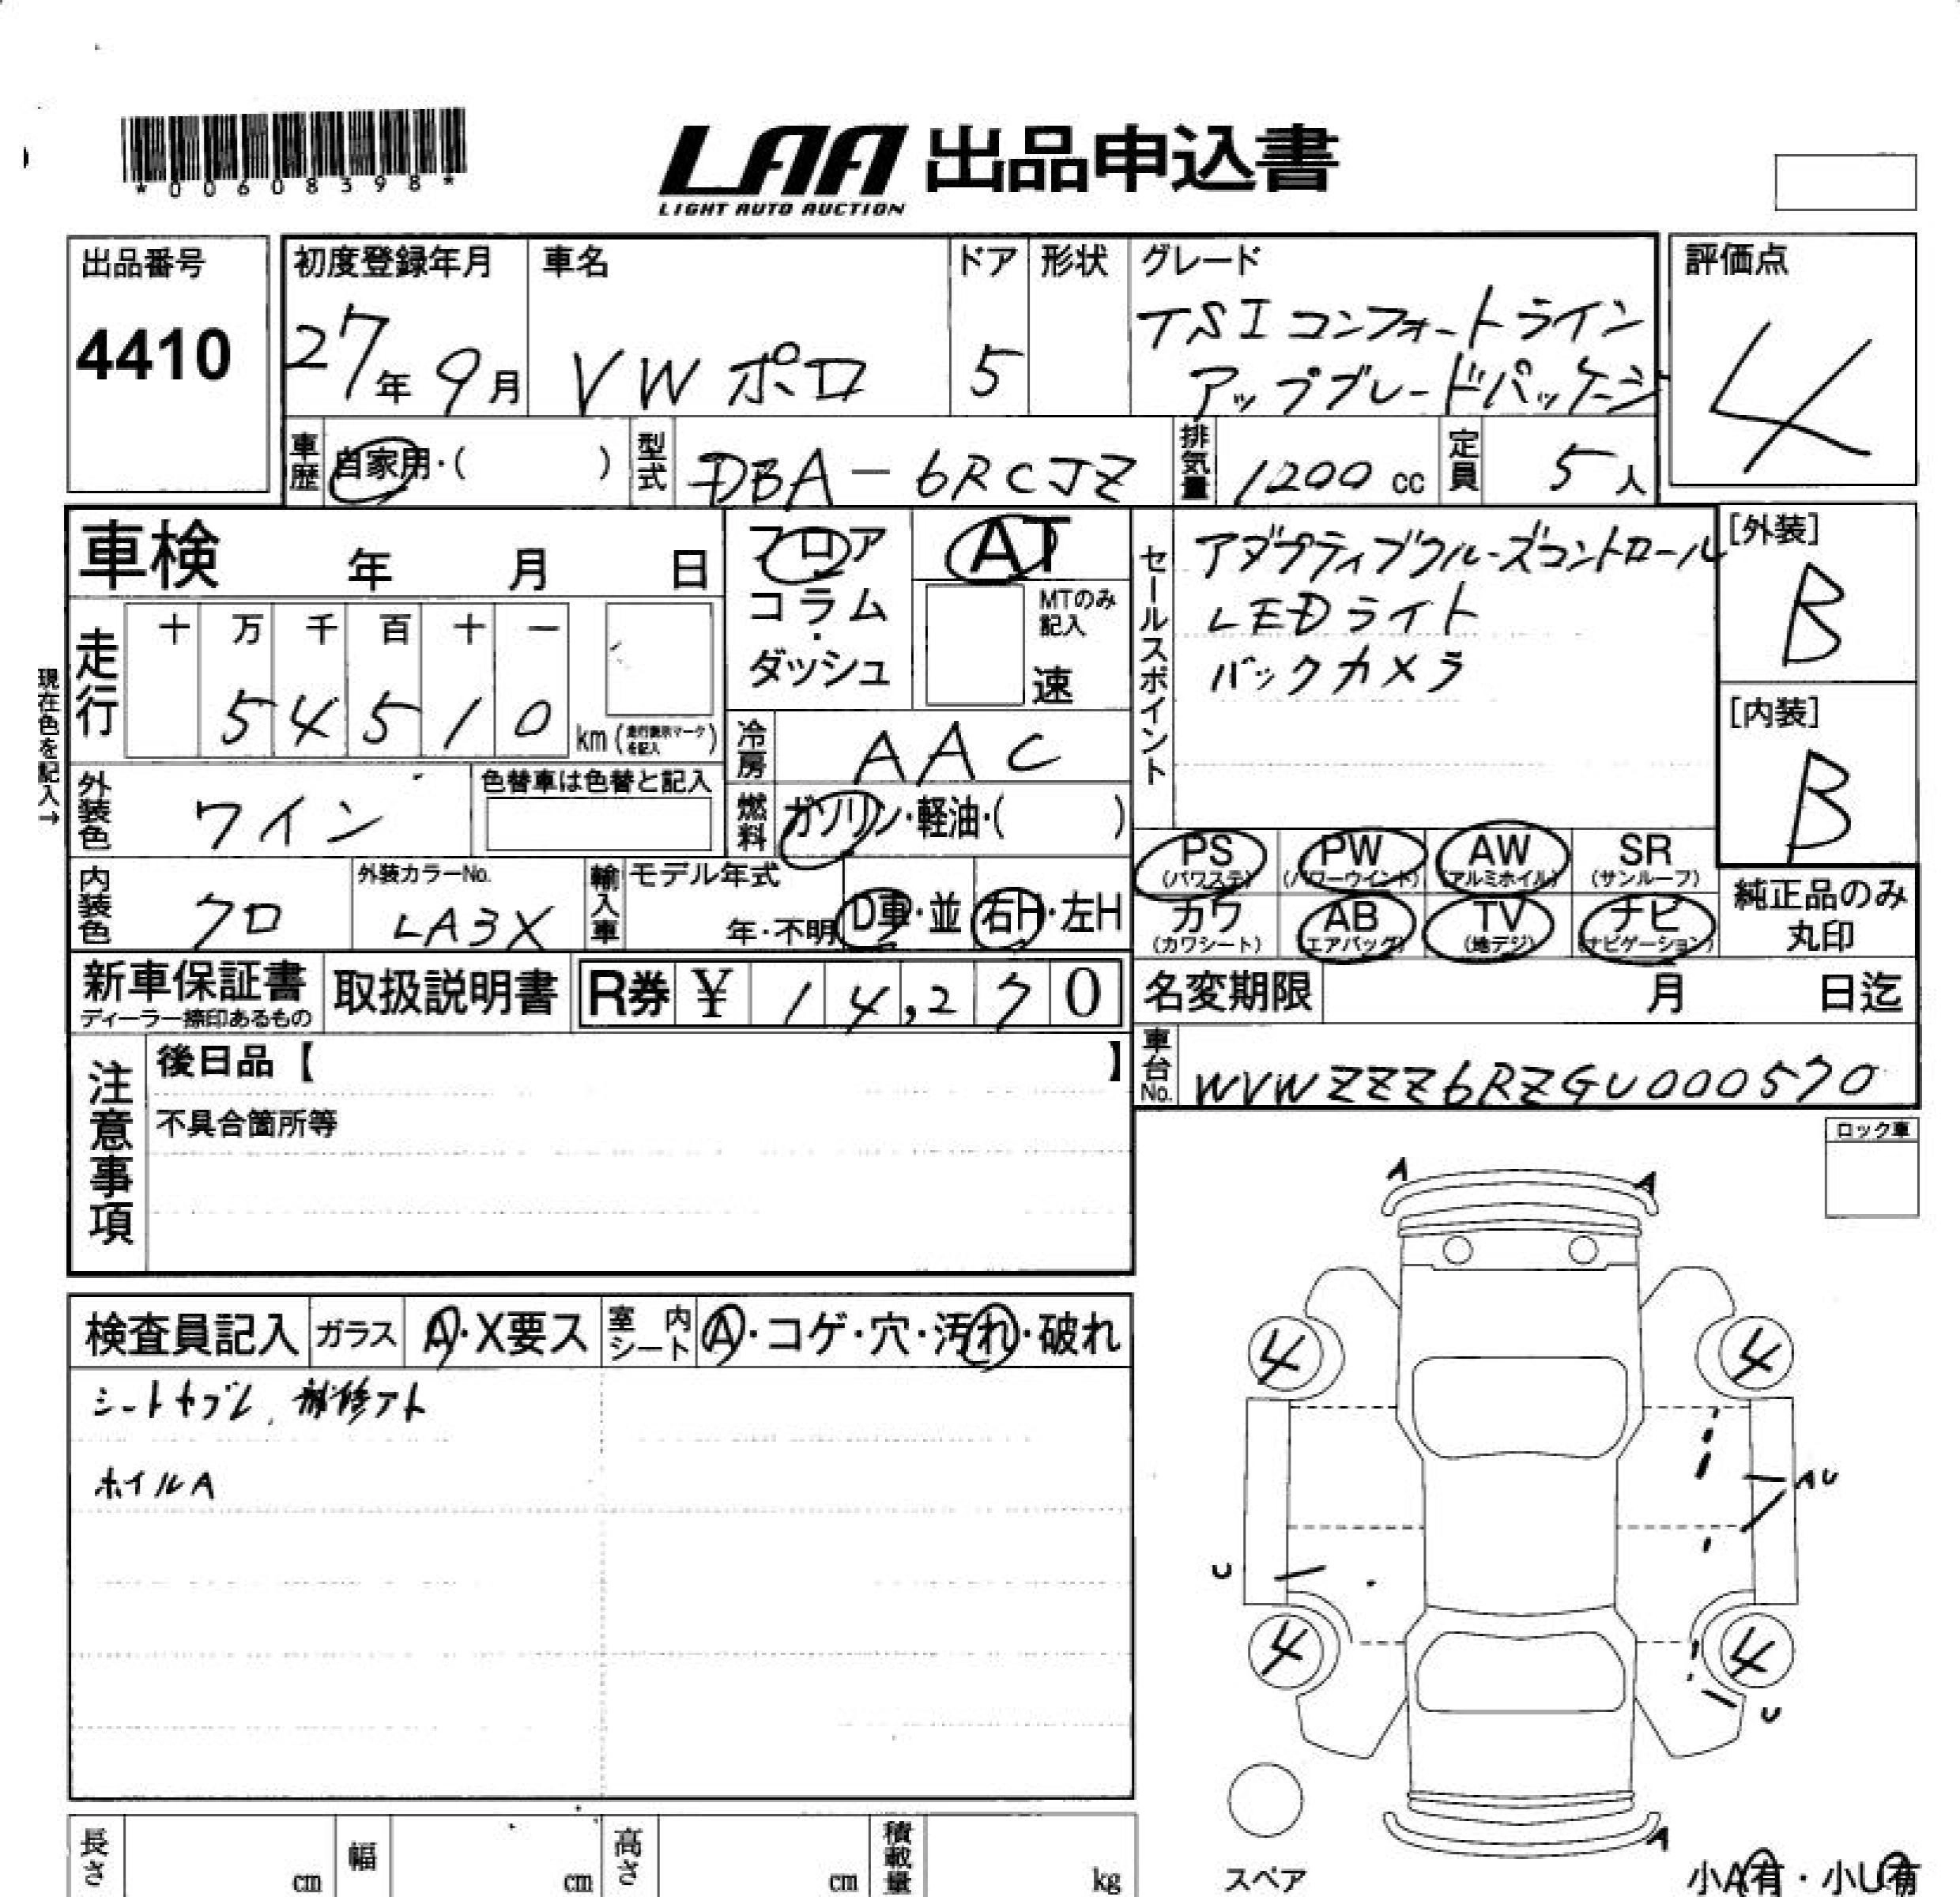 *00608398*
LAA 出品申込書
LIGHT AUTO AUCTION
出品番号
4410
初度登録年月
27年 9月
車名
VW ポロ
ドア
5
形状
グレード
TSI コンフォートライン
アップグレードパッケージ
評価点
4
車歴
自家用・( )
型式
DBA-6RCJZ
排気量
1200 cc
定員
5人
車検 年 月 日
フロア
コラム
・
ダッシュ
AT
MTのみ
記入
速
セールスポイント
アダプティブクルーズコントロール
LEDライト
バックカメラ
[外装]
B
[内装]
B
現在色を記入→
走行
十 万 千 百 十 一
5 4 5 1 0
km (走行表示マークを記入)
冷房
AAC
燃料
ガソリン・軽油・( )
外装色
ワイン
色替車は色替と記入
内装色
クロ
外装カラーNo.
LA3X
輸入車
モデル年式
年・不明
D車・並
右H・左H
PS
(パワステ)
PW
(パワーウインド)
AW
(アルミホイル)
SR
(サンルーフ)
カワ
(カワシート)
AB
(エアバッグ)
TV
(地デジ)
ナビ
(ナビゲーション)
純正品のみ
丸印
新車保証書
ディーラー捺印あるもの
取扱説明書
R券 ¥ 14,270
名変期限 月 日迄
車台No.
WVWZZZ6RZGU000570
注意事項
後日品【 】
不具合箇所等
ロック車
検査員記入
ガラス
A・X要ス
室内
シート
A・コゲ・穴・汚れ・破れ
シートヤブレ、補修アト
ホイルA
A
A
4
4
AU
U
4
4
U
A
スペア
小A有・小U有
長さ cm
幅 cm
高さ cm
積載量 kg